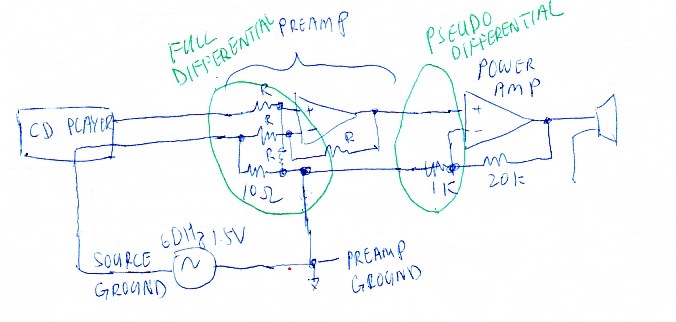 FULL
DIFFERENTIAL
PREAMP
PSEUDO
DIFFERENTIAL
POWER
AMP
CD PLAYER
R
+
R
-
R
R
10Ω
+
-
1K
20K
60Hz 1.5V
SOURCE
GROUND
PREAMP
GROUND